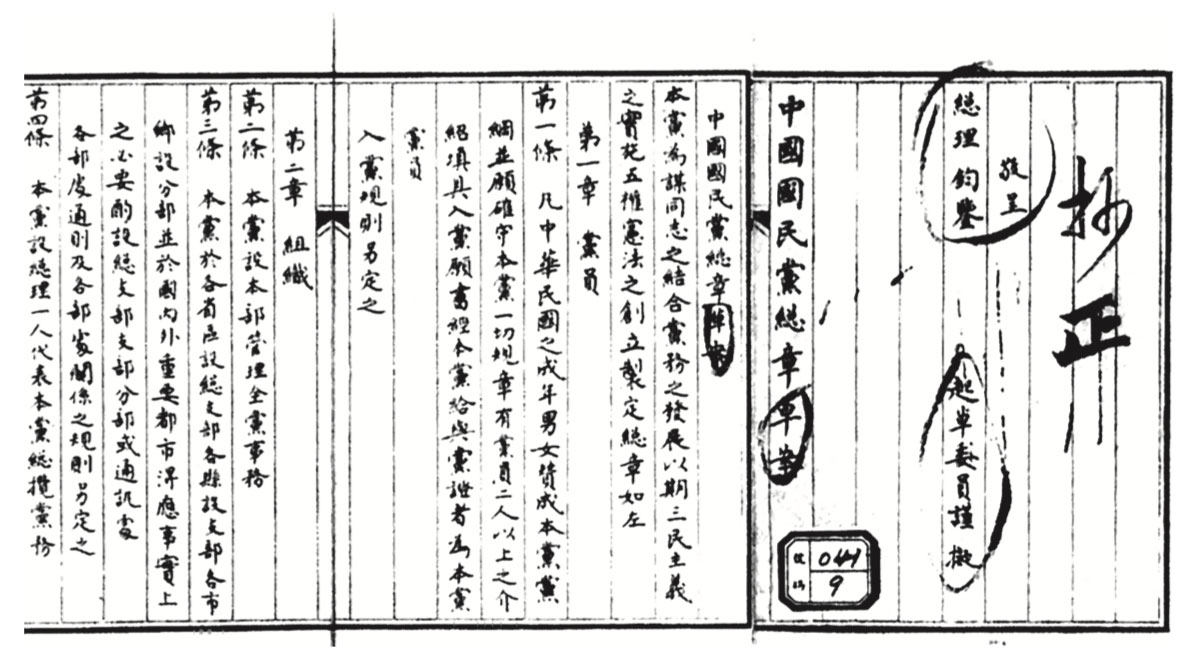 抄正
敬呈
總理 鈞鑒
起草委員謹擬
中國國民黨總章草案
044
9
中國國民黨總章草案
本黨為謀同志之結合黨務之發展以期三民主義
之實施五權憲法之創立製定總章如左
第一章 黨員
第一條 凡中華民國之成年男女贊成本黨黨
綱並願確守本黨一切規章有黨員二人以上之介
紹填具入黨願書經本黨給與黨證者為本黨
黨員
入黨規則另定之
第二章 組織
第二條 本黨設本部管理全黨事務
第三條 本黨於各省區設總支部各縣設支部各市
鄉設分部並於國內外重要都市得應事實上
之必要酌設總支部支部分部或通訊處
各部處通則及各部處關係之規則另定之
第四條 本黨設總理一人代表本黨總攬黨務